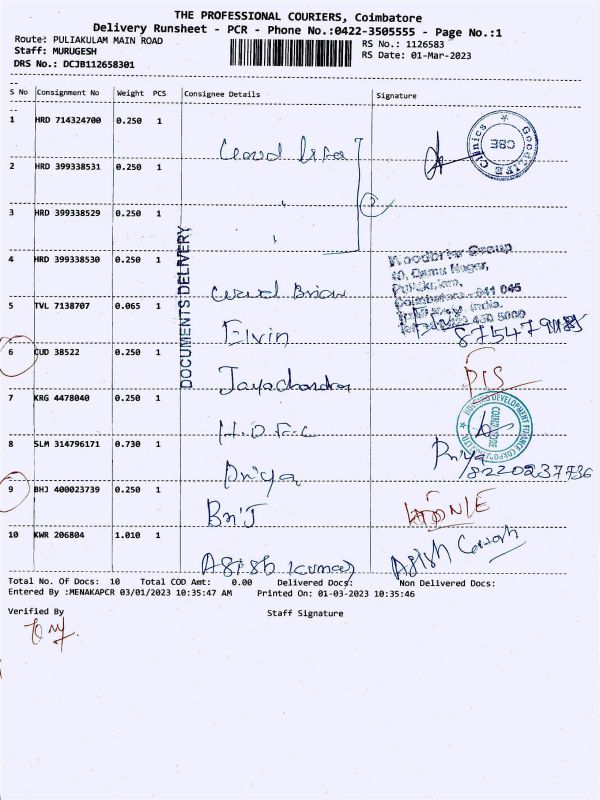 THE PROFESSIONAL COURIERS, Coimbatore
Delivery Runsheet - PCR - Phone No.:0422-3505555 - Page No.:1
Route: PULIAKULAM MAIN ROAD
Staff: MURUGESH
DRS No.: DCJB112658301
RS No.: 1126583
RS Date: 01-Mar-2023
S No Consignment No Weight PCS Consignee Details Signature
1 HRD 714324700 0.250 1
GoodLIFE Clinics CBE
2 HRD 399338531 0.250 1
3 HRD 399338529 0.250 1
DOCUMENTS DELIVERY
4 HRD 399338530 0.250 1
Woodbriar Group
Puliakulam,
Coimbatore - 641 045
India.
5 TVL 7138707 0.065 1 Elvin
6 CUD 38522 0.250 1 Jayachandra
7 KRG 4478040 0.250 1 H.D.F.C
HOUSING DEVELOPMENT FINANCE CORPORATION LTD COIMBATORE
8 SLM 314796171 0.730 1 Priya Priya
8220237736
9 BHJ 400023739 0.250 1
10 KWR 206804 1.010 1
Total No. Of Docs: 10 Total COD Amt: 0.00 Delivered Docs: Non Delivered Docs:
Entered By :MENAKAPCR 03/01/2023 10:35:47 AM Printed On: 01-03-2023 10:35:46
Verified By Staff Signature